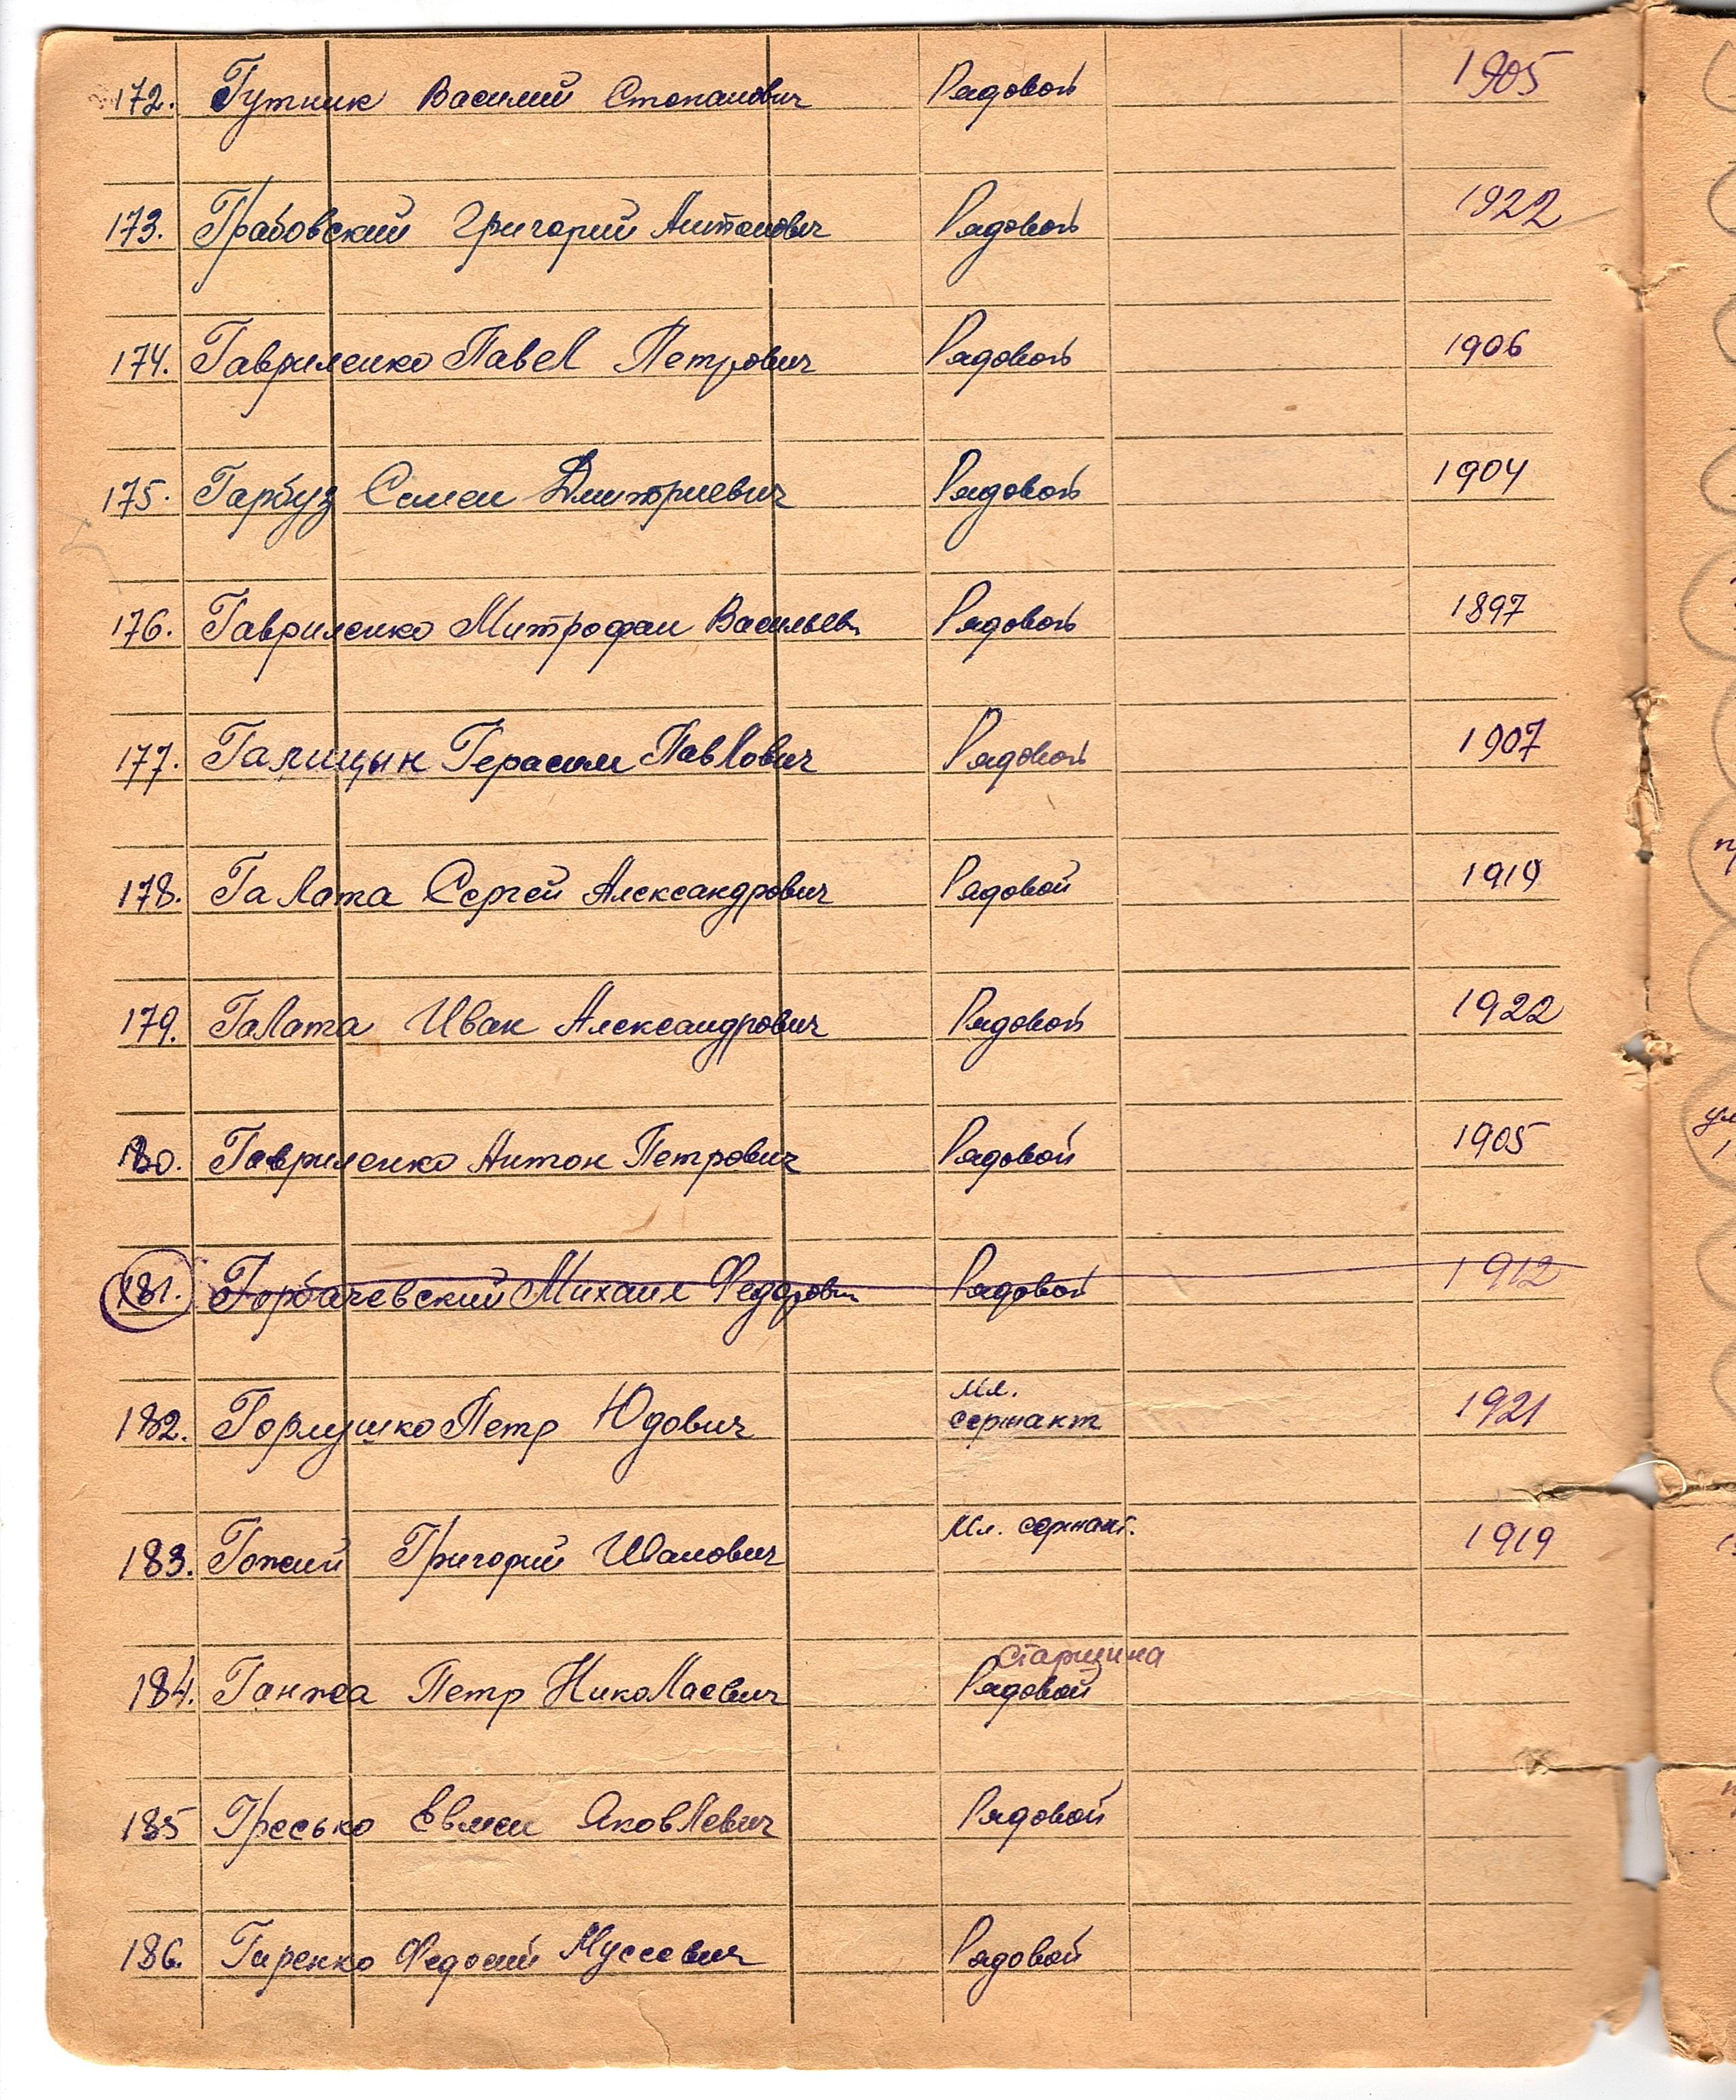 172. Гутник Василий Степанович Рядовой 1905
173. Грабовский Григорий Антонович Рядовой 1922
174. Гавриленко Павел Петрович Рядовой 1906
175. Гарбуз Семен Дмитриевич Рядовой 1904
176. Гавриленко Митрофан Васильев. Рядовой 1897
177. Галицын Герасим Павлович Рядовой 1907
178. Галата Сергей Александрович Рядовой 1919
179. Галата Иван Александрович Рядовой 1922
180. Гавриленко Антон Петрович Рядовой 1905
181. Горбачевский Михаил Федорович Рядовой 1912
182. Горлушко Петр Юдович Мл. сержант 1921
183. Гожий Григорий Иванович Мл. сержант. 1919
старшина
184. Ганжа Петр Николаевич Рядовой
185 Гресько Евмен Яковлевич Рядовой
186. Гиренко Федосий Мусеевич Рядовой